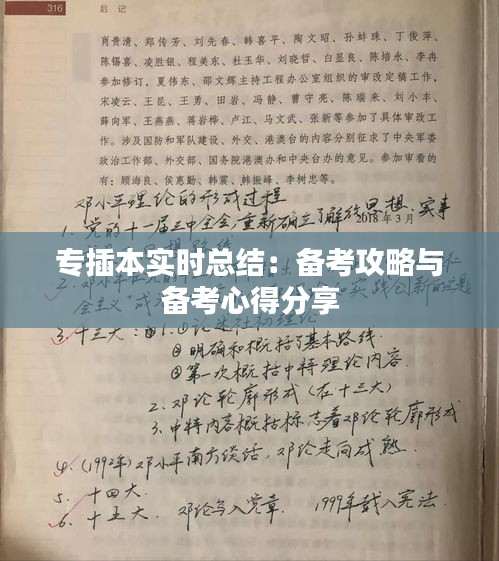 316 后记
肖贵清、郑传芳、刘先春、韩喜平、陶文昭、孙蚌珠、丁俊萍、
陈锡喜、凌胜银、程美东、杜玉华、刘晓哲、白显良、陈培永、李冉
参加修订,夏伟东、邵文辉主持工程办公室组织的审改定稿工作,
宋凌云、王昆、王勇、田岩、冯静、曹守亮、陈瑞来、刘小丰、
薛向军、王燕燕、蒋岩桦、卢江、马文武、张新等参加了具体审改工
作。涉及国防和军队建设、外交、港澳台的内容分别征求了中央军委
政治工作部、外交部、国务院港澳办和中央台办的意见。参加审看的
有:顾海良、侯惠勤、韩震、韩振峰、李树忠等。
邓小平理论的形成过程
2018年3月
1. 党的十一届三中全会,重新确立了解放思想、实事
专插本实时总结:备考攻略与
备考心得分享
3. 十三大:
②明确和概括了基本路线.
③第一次概括中特理论内容.
2. 邓论轮廓形成(在十三大)
3. 中特内容概括标志着邓论轮廓形成
4. (1992年)邓小平南方谈话,邓论走向成熟.
5. 十四大.
6. 十五大. 邓论写入党章. 1999年载入宪法.